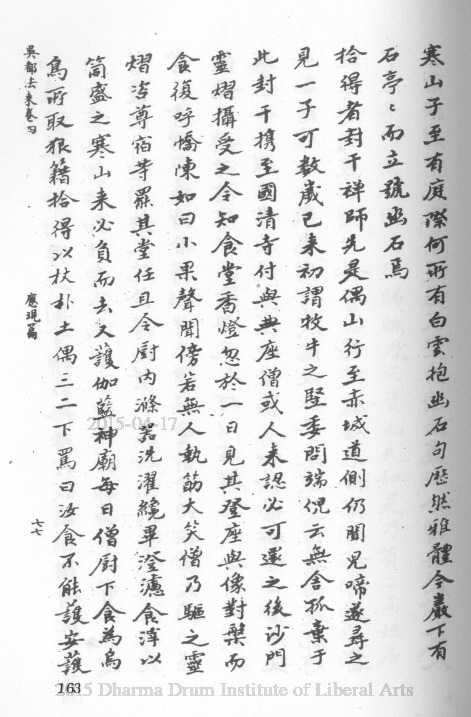 寒山子至有庭際何所有白雲抱幽石句歷然雅體今巖下有
石亭〻而立號幽石焉
拾得者封干禅師先是偶山行至赤城道側仍聞兒啼遂尋之
見一子可数歲已來初謂牧牛之竪委問端倪云無舍孤棄于
此封干携至國清寺付與典座僧或人来認必可還之後沙門
靈熠攝受之令知食堂香燈忽於一日見其登座與像對槃而
食復呼憍陳如曰小果聲聞傍若無人執筯大笑僧乃驅之靈
熠咨尊宿等罷其堂任且令厨内滌器洗濯纔畢澄濾食滓以
筒盛之寒山来必負而去又護伽藍神廟每日僧厨下食為烏
鳥所取狼籍拾得以杖扑土偶三二下罵曰汝食不能護安護
吳都法乘卷四
應現篇
七七
163
2015-04-17
2015 Dharma Drum Institute of Liberal Arts